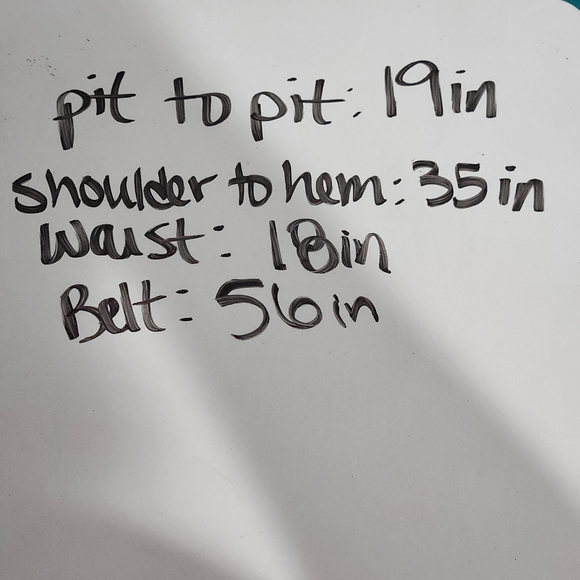 pit to pit: 19in
shoulder to hem: 35in
Waist: 18in
Belt: 56in